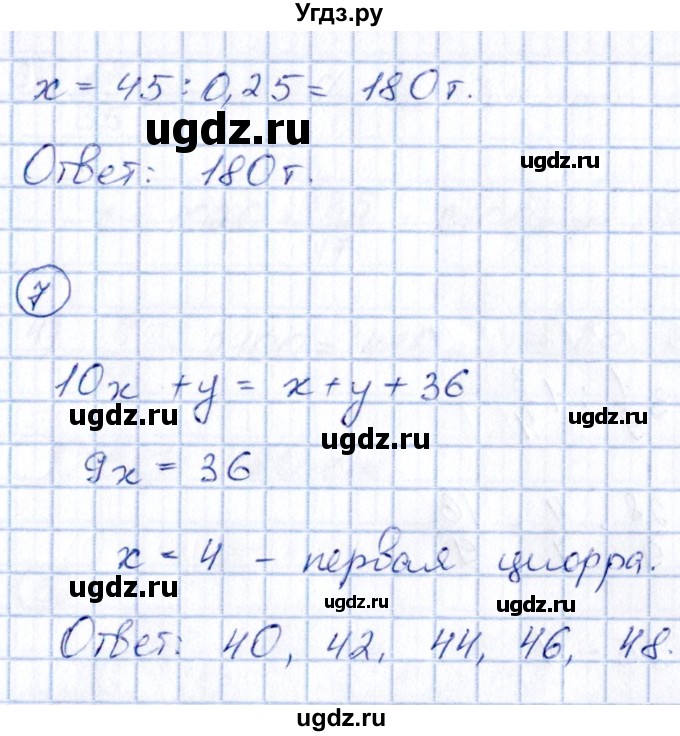 Угдз.ру
x = 45 : 0,25 = 180 т.
ugdz.ru
ugdz.ru
Ответ: 180 т.
7
10x + y = x + y + 36
ugdz.ru
ugdz.ru
ugdz.ru
9x = 36
x = 4 - первая цифра.
ugdz.ru
ugdz.ru
ugdz.ru
Ответ: 40, 42, 44, 46, 48.
ugdz.ru
ugdz.ru